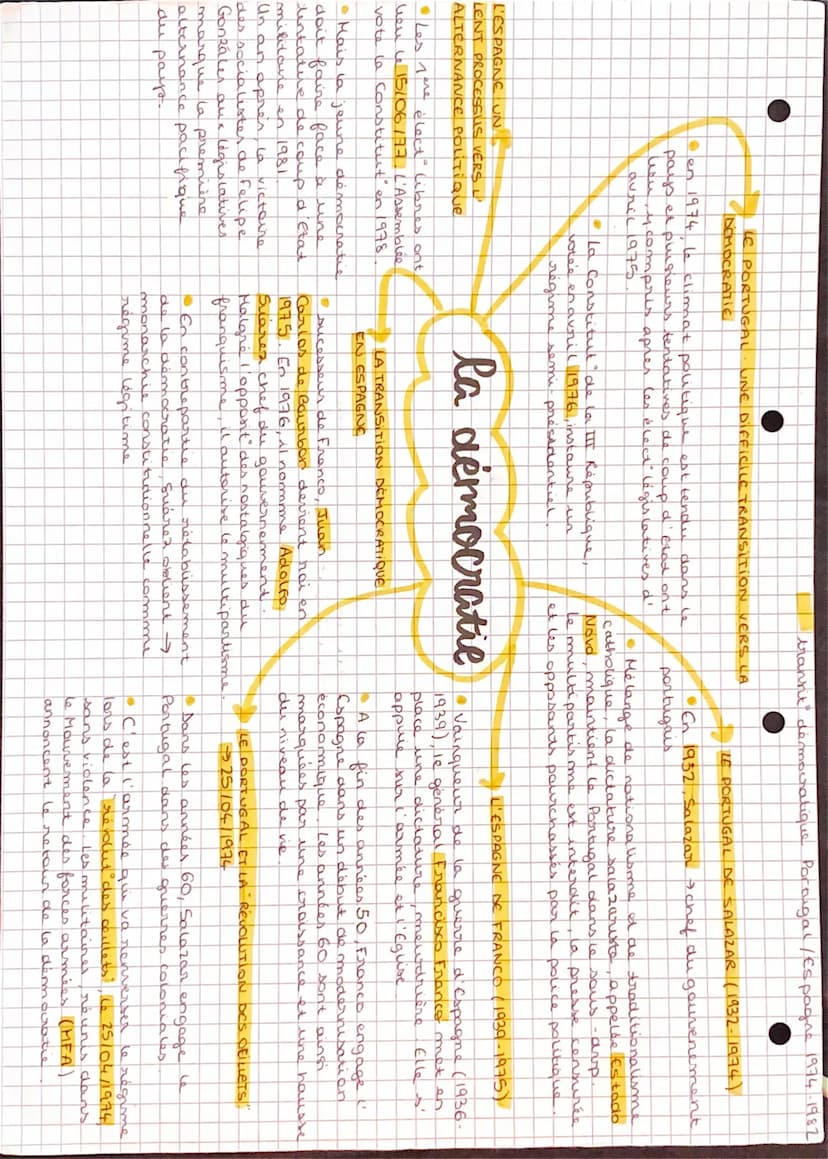 transit° démocratique Portugal/Espagne 1974-1982
LE PORTUGAL : UNE DIFFICILE TRANSITION VERS LA
DÉMOCRATIE
• en 1974, le climat politique est tendu dans le
pays et plusieurs tentatives de coup d'état ont
lieu, y compris après les élect° législatives d'
avril 1975.
• La Constitut° de la III République,
votée en avril 1976, instaure un
régime semi-présidentiel.
LE PORTUGAL DE SALAZAR (1932-1974)
• En 1932, Salazar → chef du gouvernement
portugais
• Mélange de nationalisme et de traditionalisme
catholique, la dictature salazariste, appelée Estado
Novo, maintient le Portugal dans le sous-dvp.
le multipartisme est interdit, la presse censurée
et les opposants pourchassés par la police politique.
La démocratie
L'ESPAGNE UN
LENT PROCESSUS VERS L'
ALTERNANCE POLITIQUE
• Les 1ère élect° libres ont
lieu le 15/06/77. L'Assemblée
vote la Constitut° en 1978.
• Mais la jeune démocratie
doit faire face à une
tentative de coup d'État
militaire en 1981.
Un an après la victoire
des socialistes de Felipe
Gonzáles aux législatives
marque la première
alternance pacifique
du pays.
LA TRANSITION DÉMOCRATIQUE
EN ESPAGNE
• successeur de Franco, Juan
Carlos de Bourbon devient roi en
1975. En 1976, il nomme Adolfo
Suárez chef du gouvernement.
Malgré l'opposit° des nostalgiques du
franquisme, il autorise le multipartisme.
• En contrepartie du rétablissement
de la démocratie, Suárez obtient →
monarchie constitutionnelle comme
régime légitime
L'ESPAGNE DE FRANCO (1939-1975)
• Vainqueur de la guerre d'Espagne (1936-
1939), le général Francisco Franco met en
place une dictature meurtrière. Elle s'
appuie sur l'armée et l'Église.
• A la fin des années 50, Franco engage l'
Espagne dans un début de modernisation
économique. Les années 60 sont ainsi
marquées par une croissance et une hausse
du niveau de vie.
LE PORTUGAL ET LA "RÉVOLUTION DES OEILLETS"
→ 25/04/1974
• Dans les années 60, Salazar engage le
Portugal dans des guerres coloniales.
• C'est l'armée qui va renverser le régime
lors de la "révolut° des oeillets", le 25/04/1974,
sans violence. Les militaires, réunis dans
le Mouvement des forces armées (MFA)
annoncent le retour de la démocratie.